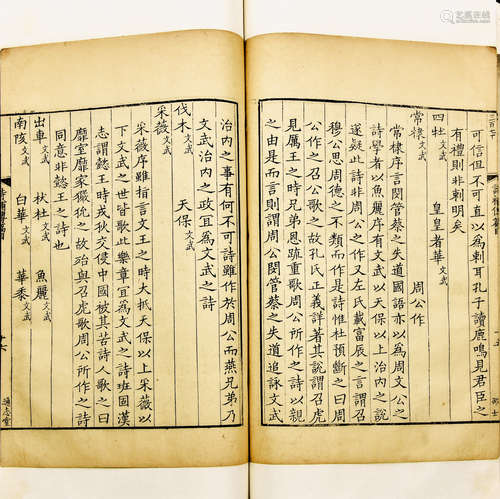 可信但不可直以為刺耳孔子讀鹿鳴見君臣之
有禮則非刺明矣
四牡文武
皇皇者華文武
常棣文武
周公作
常棣序言閔管蔡之失道國語亦以為周文公之
詩學者以魚麗序有文武以天保以上治內之說
遂疑此詩非周公之作又左氏載富辰之言謂召
穆公思周德之不類而作是詩惟杜預斷之曰周
公作之召公歌之故孔氏正義詳著其說謂召虎
見厲王之時兄弟恩疏重歌周公所作之詩以親
之由是而言則謂周公閔管蔡之失道追詠文武
治內之事有何不可詩雖作於周公而燕兄弟乃
文武治內之政宜為文武之詩
伐木文武
天保文武
采薇文武
采薇序雖指言文王之時大抵天保以上采薇以
下文武之世皆歌此樂章宜為文武之詩班固漢
志謂懿王時戎狄交侵中國被其苦詩人歌之曰
靡室靡家玁狁之故殆與召虎歌周公所作之詩
同意非懿王之詩也
出車文武
杕杜文武
魚麗文武
南陔文武
白華文武
華黍文武
通志堂
艺典在线